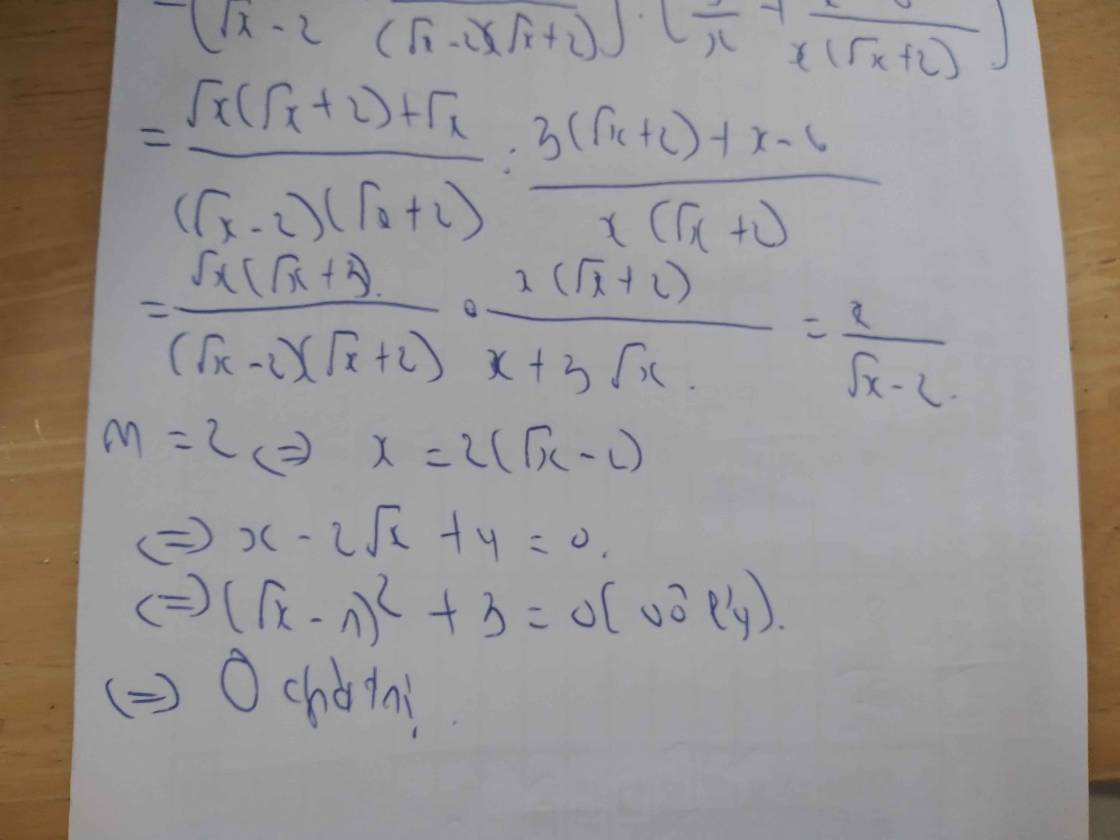 = (√x - 2 (√x-2)(√x+2)) : (3/x + x(√x+2))
= (√x(√x+2)+√x)/((√x-2)(√x+2)) : (3(√x+2)+x-6)/(x(√x+2))
= (√x(√x+3))/((√x-2)(√x+2)) · (x(√x+2))/(x+3√x) = x/(√x-2).
M = 2 <=> x = 2(√x-2)
<=> x - 2√x + 4 = 0.
<=> (√x - 1)² + 3 = 0 (vô lý).
<=> 0 có